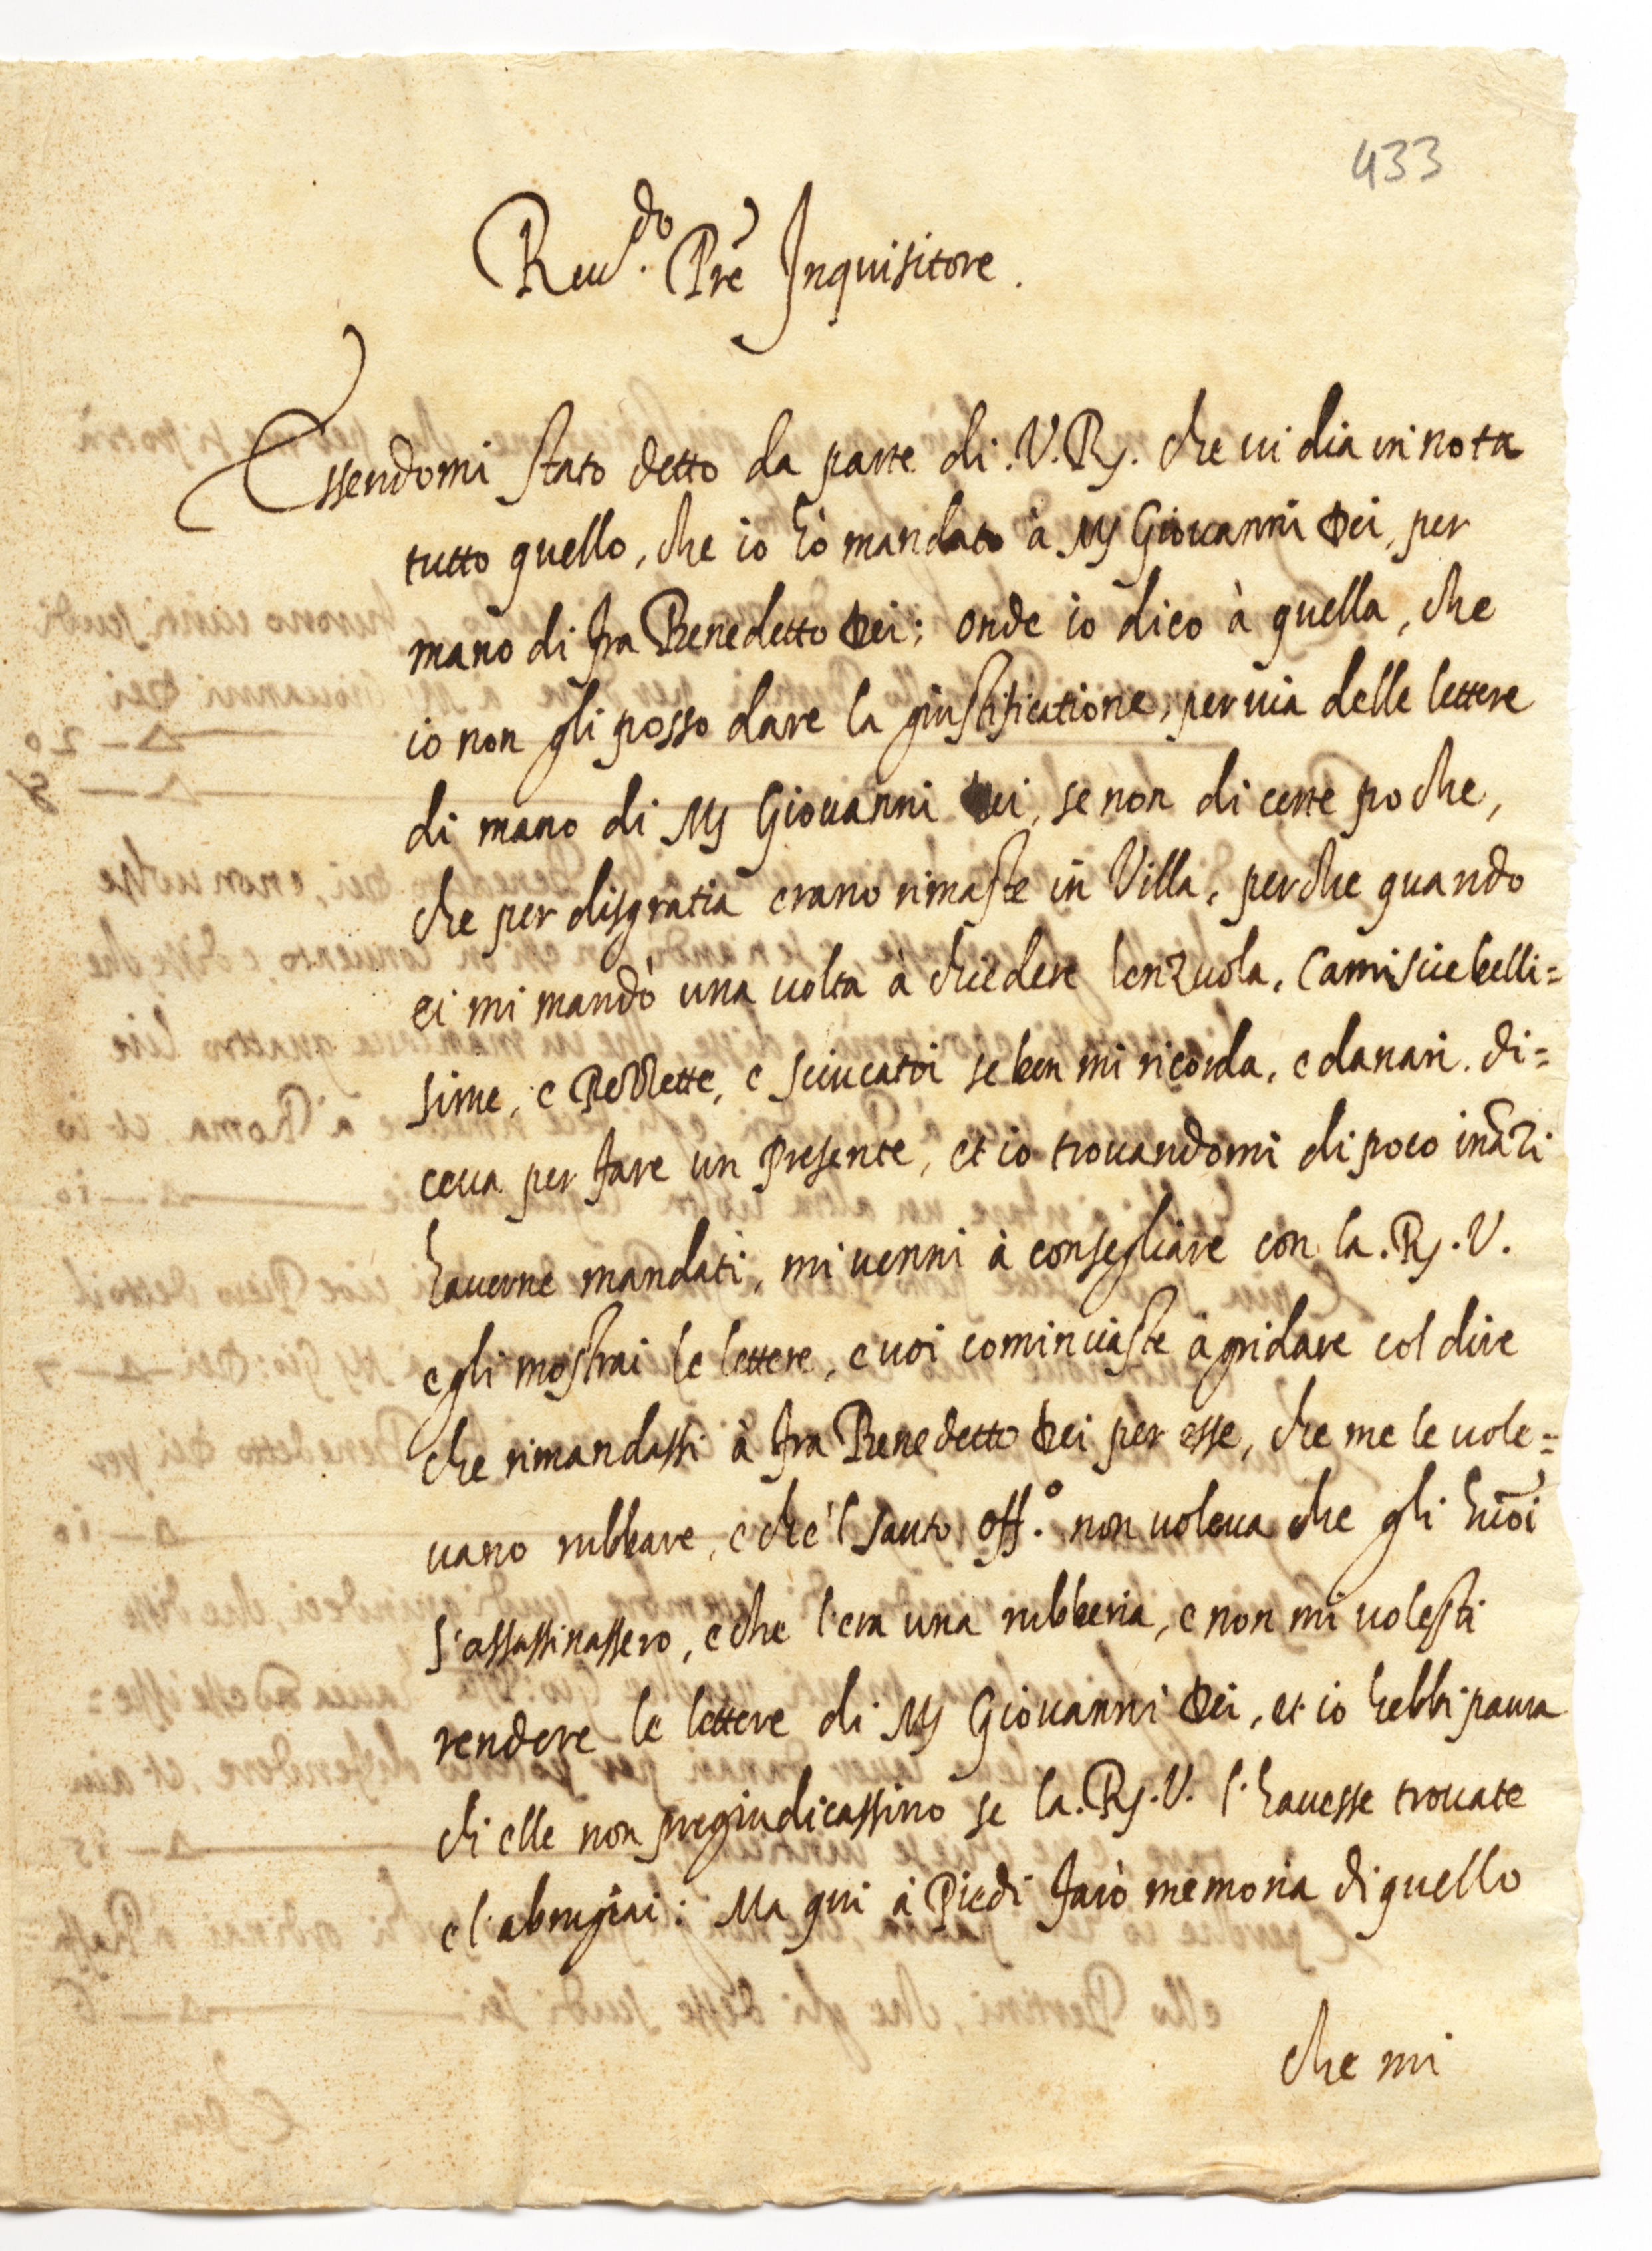 433
Reu.do Pre Inquisitore.
Essendomi stato detto da parte di .V.R. che ui dia in nota
tutto quello, che io hò mandato à Ms Giouanni Dei, per
mano di fra Benedetto Dei: onde io dico à quella, che
io non gli posso dare la giustificatione, per uia delle lettere
di mano di Ms Giouanni Dei, se non di certe poche,
che per disgratia erano rimaste in Villa, perche quando
ei mi mandò una uolta à chiedere lenzuola, Camiscie belli=
sime, e Pezzette, e sciucatoi se ben mi ricorda, e danari. di=
ceua per fare un Presente, et io trouandomi di poco inãzi
hauerne mandati, mi uenni à consegliare con la .R.V.
e gli mostrai le lettere, e uoi cominciaste à gridare col dire
che rimandassi à fra Benedetto Dei per esse, che me le uole=
uano rubbare, e che 'l santo off.o non uoleua che gli huoi
s'assassinassero, e che l'era una rubberia, e non mi uolesti
rendere le lettere di Ms Giouanni Dei, et io hebbi paura
ch'elle non pregiudicassino se la .R.V. l'hauesse trouate
e l'abrugiai: Ma qui à Piedi farò memoria di quello
che mi